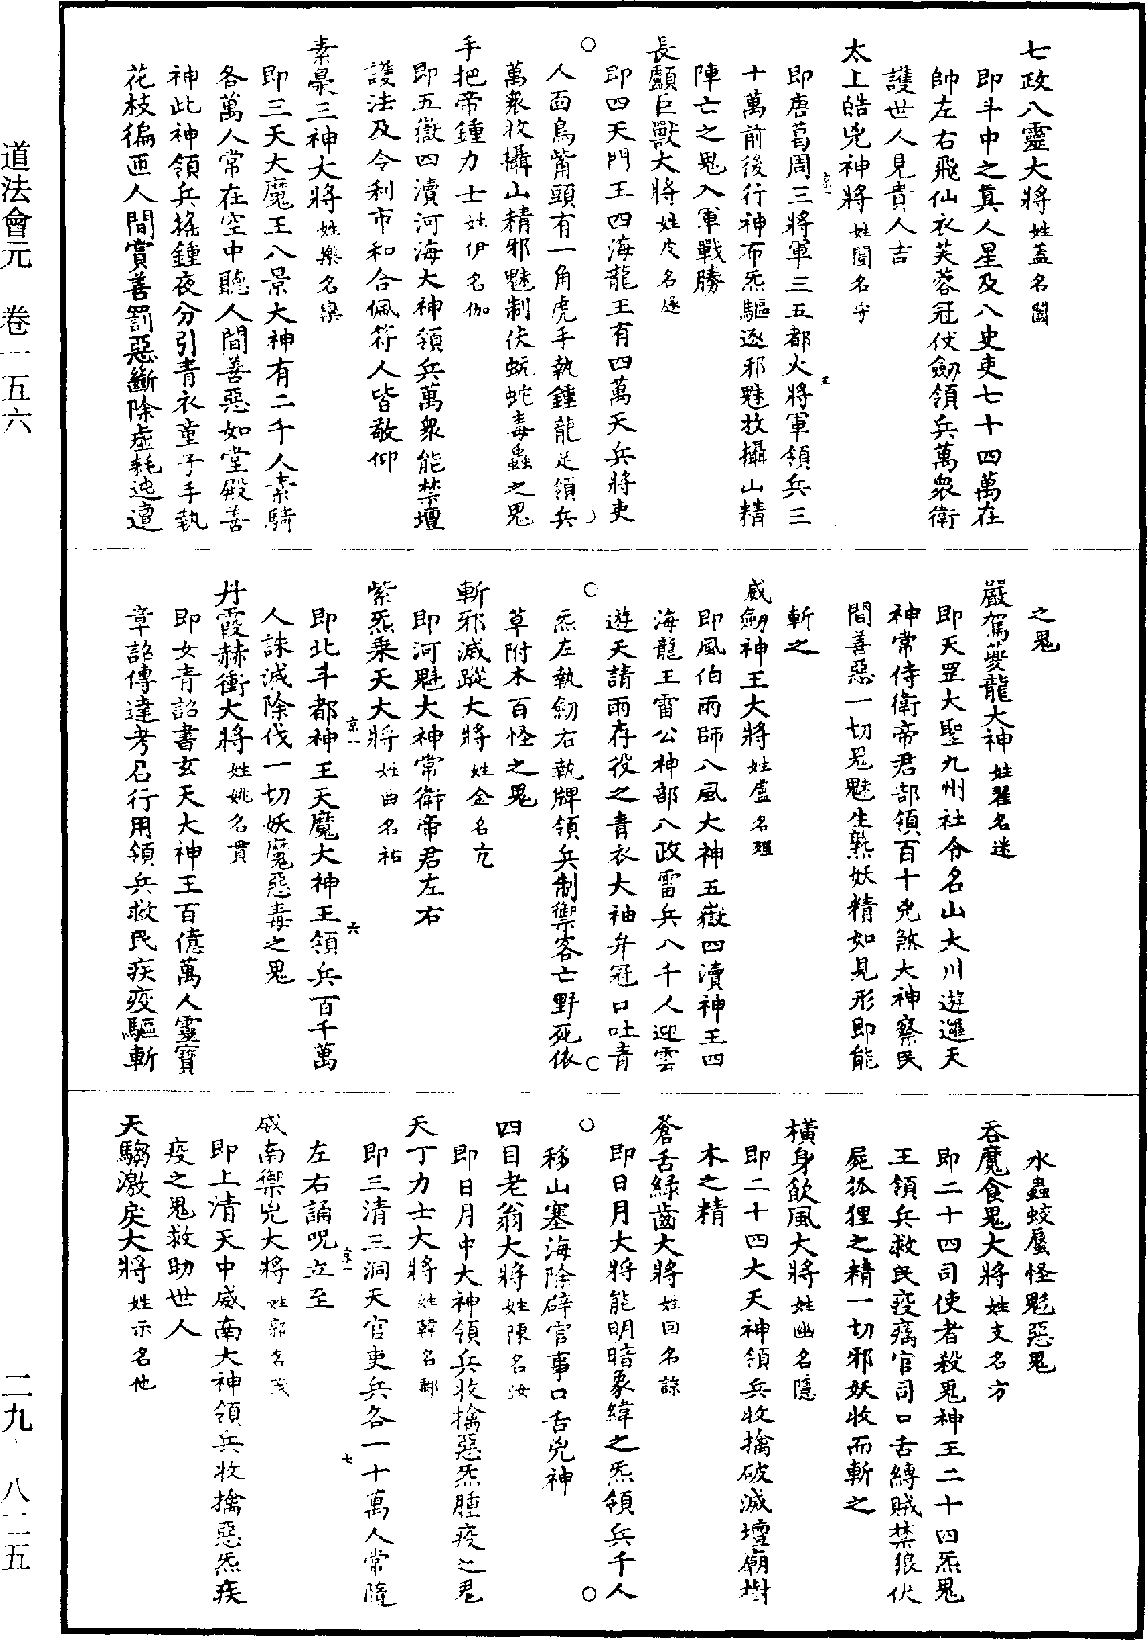 七政八靈大將姓蓋名闔
即斗中之真人星及八史吏七十四萬在
帥左右飛仙衣芙蓉冠仗劒領兵萬衆衛
護世人見貴人吉
太上皓兇神將姓閻名宇
即唐葛周三將軍三五都火將軍領兵三
十萬前後行神布炁驅逐邪魅收攝山精
陣亡之鬼入軍戰勝
長顱巨獸大將姓皮名逐
即四天門王四海龍王有四萬天兵將吏
人面鳥觜頭有一角虎手執鍾龍足領兵
萬衆收攝山精邪魅制伏蚖蛇毒蟲之鬼
手把帝鍾力士姓伊名伽
即五嶽四瀆河海大神領兵萬衆能禁壇
護法及令利市和合佩符人皆敬仰
素梟三神大將姓樂名梁
即三天大魔王八景大神有二千人素騎
各萬人常在空中聽人間善惡如堂殿善
神此神領兵搖鍾夜分引青衣童子手執
花枝徧迊人間賞善罰惡斷除虛耗迍邅
之鬼
嚴駕夔龍大神姓翟名迷
即天罡大聖九州社令名山大川遊邏天
神常侍衛帝君部領百十兇煞大神察民
間善惡一切鬼魅生熟妖精如見形即能
斬之
威劒神王大將姓盧名理
即風伯雨師八風大神五嶽四瀆神王四
海龍王雷公神部八政雷兵八千人迎雲
遊天請雨存役之青衣大袖弁冠口吐青
炁左執劒右執牌領兵制禦客亡野死依
草附木百怪之鬼
斬邪滅蹤大將姓金名亢
即河魁大神常衛帝君左右
紫炁乗天大將姓曲名祐
即北斗都神王天魔大神王領兵百千萬
人誅滅除伐一切妖魔惡毒之鬼
丹霞赫衝大將姓姚名貫
即女青詔書玄天大神王百億萬人靈寶
章詔傳達考召行用領兵救民疾疫驅斬
水蟲蛟蜃怪魅惡鬼
吞魔食鬼大將姓支名方
即二十四司使者殺鬼神王二十四炁鬼
王領兵救民疫癘官司口舌縛賊禁狼伏
屍狐狸之精一切邪妖收而斬之
橫身飲風大將姓幽名隱
即二十四大天神領兵收擒破滅壇廟樹
木之精
蒼舌緑齒大將姓回名諒
即日月大將能明暗象緯之炁領兵千人
移山塞海除辟官事口舌兇神
四目老翁大將姓陳名汝
即日月中大神領兵收擒惡炁腫疫之鬼
天丁力士大將姓韓名鄰
即三清三洞天官吏兵各一十萬人常隨
左右誦呪立至
威南禦兇大將姓郭名茂
即上清天中威南大神領兵收擒惡炁疾
疫之鬼救助世人
天騶激戾大將姓示名他
道法會元 卷一五六
二九 八一五